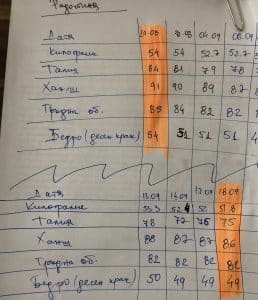 Радостина
Дата 19.08 04.09 08.09
Килограми 54 54 52.7 52.7
Талия 84 81 79 78
Ханш 91 90 89 87
Гръдна об. 85 84 82 82
Бедро (десен крак) 54 51 51 51
Дата 13.09 14.09 17.09 18.09
Килограми 53.3 51.8
Талия 78 77 76 75
Ханш 88 87 87 86
Гръдна об. 82 82 82 82
Бедро (десен крак) 50 49 49 49